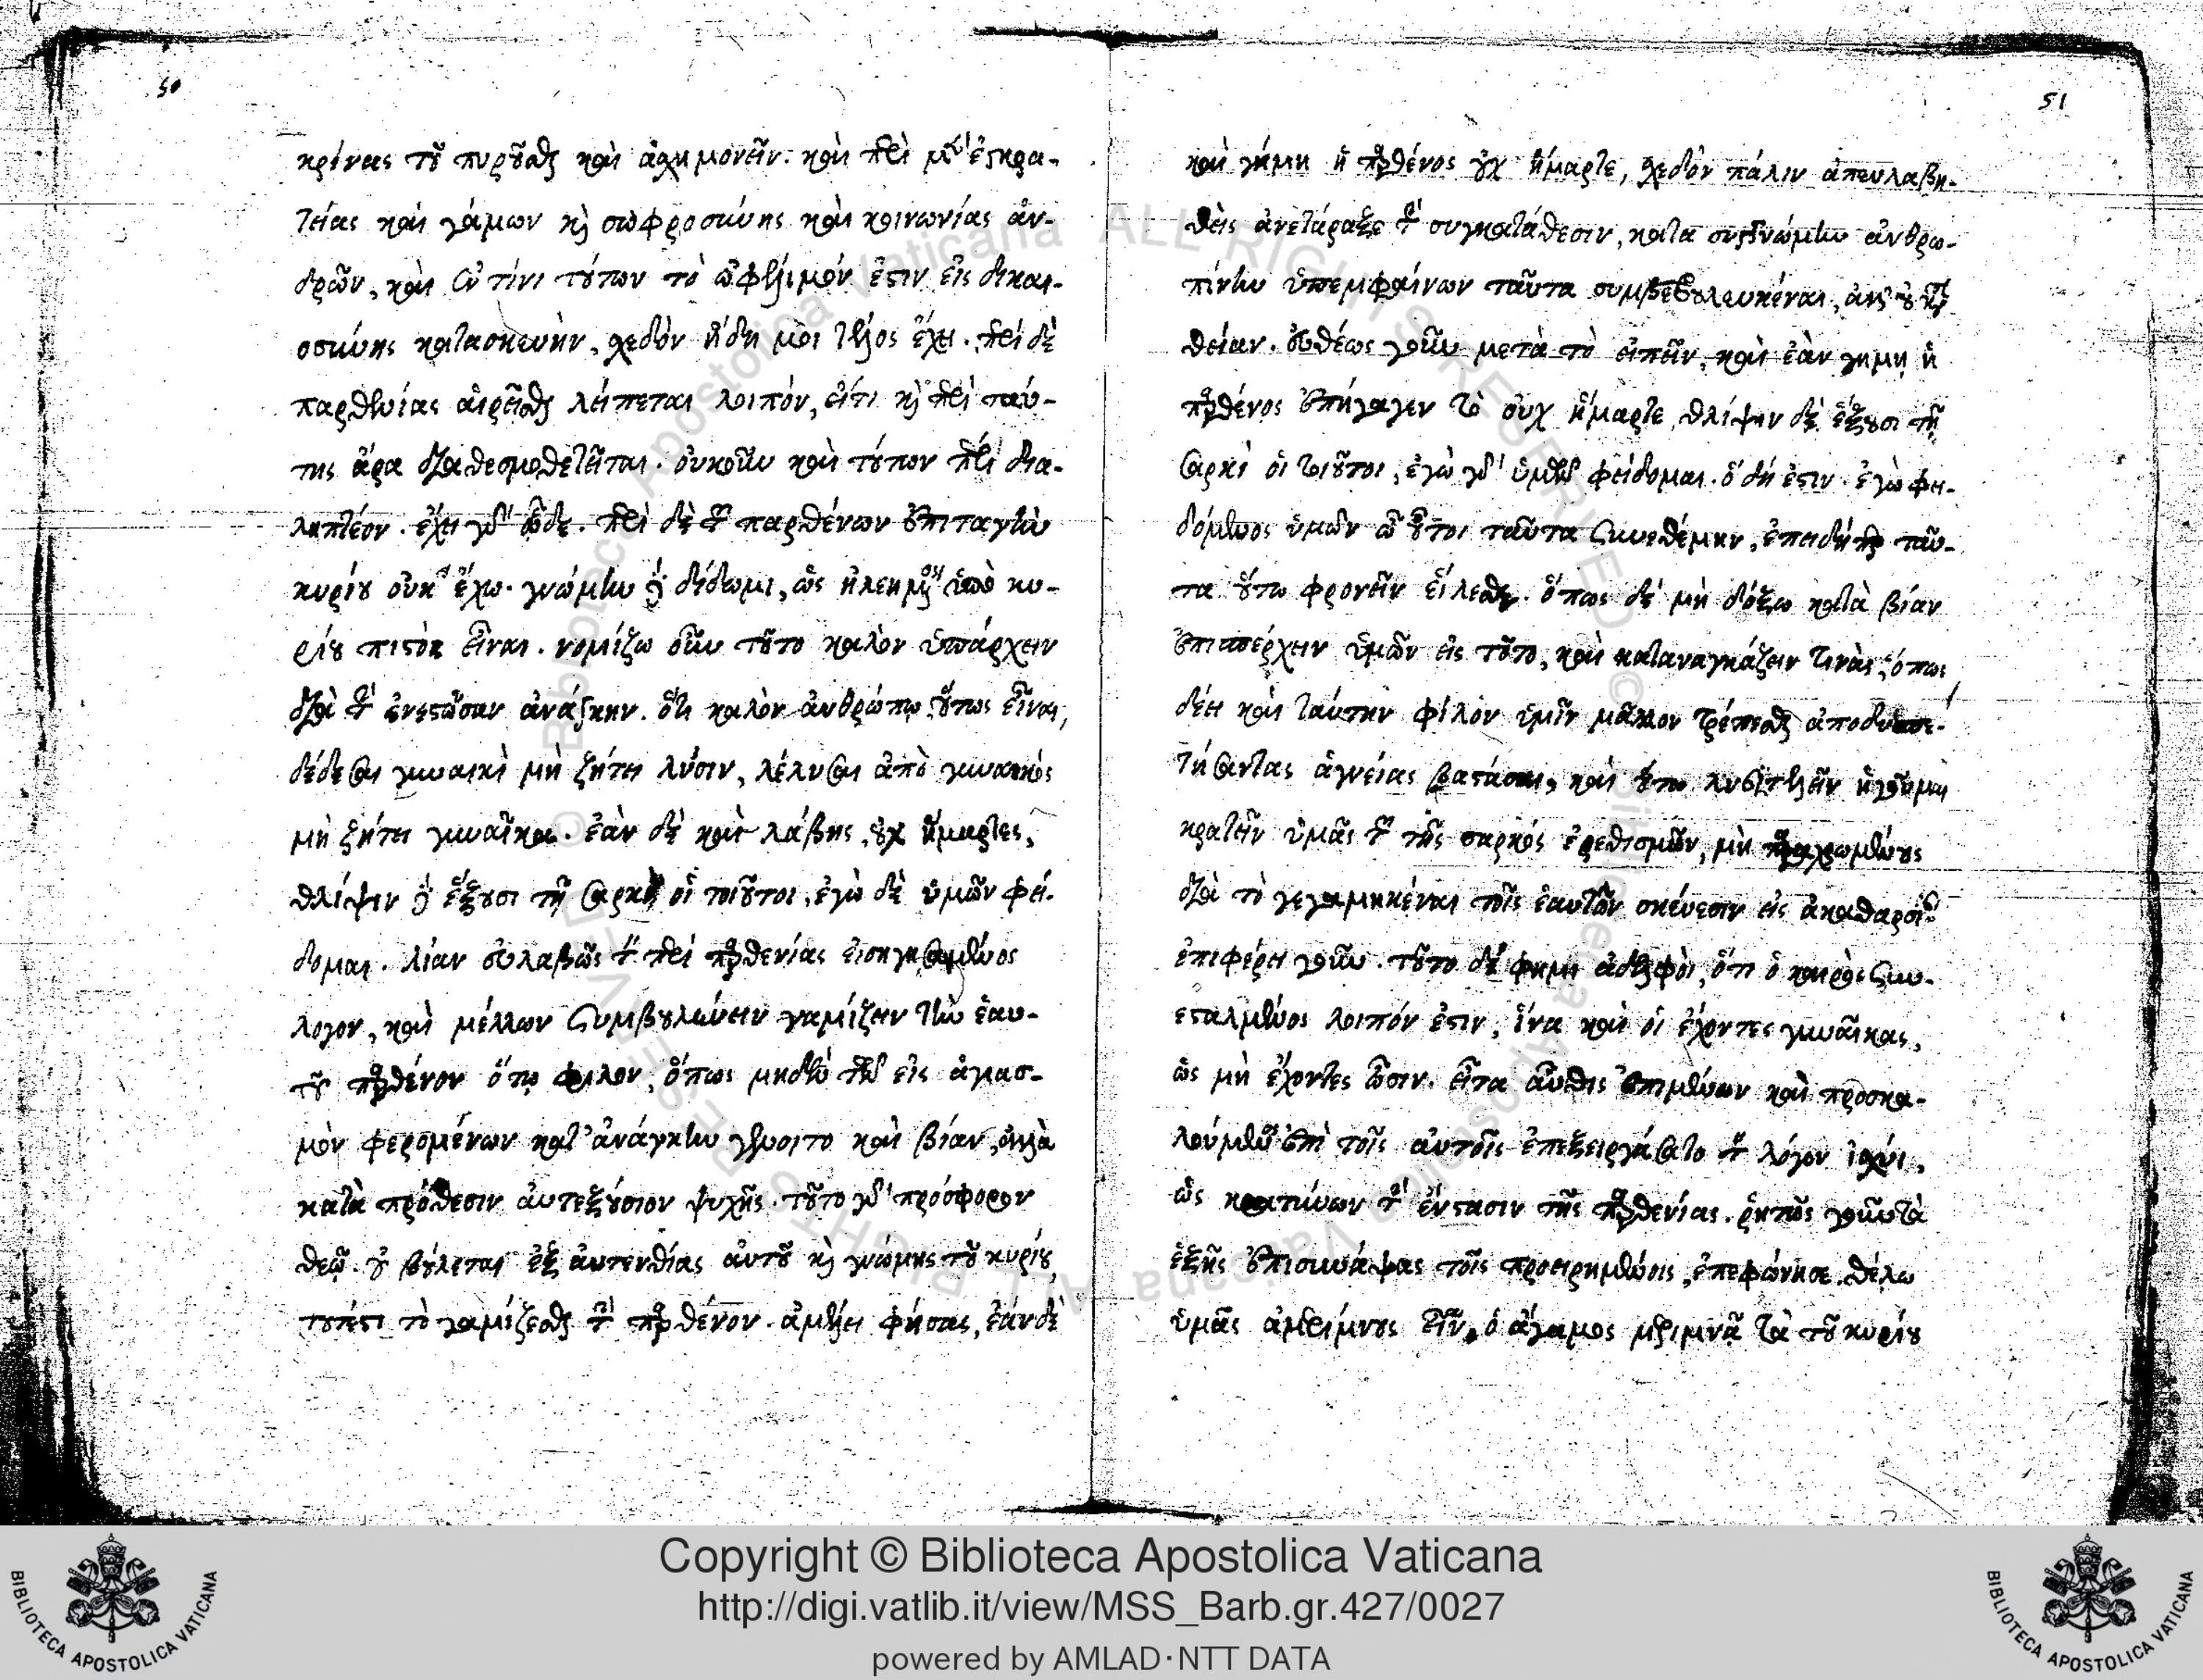 50
κρίνας τοῦ πυροῦσθαι καὶ ἀσχημονεῖν. καὶ περὶ μὲν ἐγκρα-
τείας καὶ γάμων καὶ σωφροσύνης καὶ κοινωνίας ἀν-
δρῶν, καὶ ἐν τίνι τούτων τὸ ὠφέλιμόν ἐστιν εἰς δικαι-
οσύνης κατασκευὴν, σχεδὸν ἤδη μοι τέλος ἔχει. περὶ δὲ
παρθενίας αἱρεῖσθαι λείπεται λοιπόν, εἴτι καὶ περὶ ταύ-
της ἄρα διαθεσμοθετεῖται. οὐκοῦν καὶ τούτων περὶ δια-
ληπτέον. ἔχει γὰρ ὧδε. περὶ δὲ τῶν παρθένων ἐπιταγὴν
κυρίου οὐκ ἔχω. γνώμην δὲ δίδωμι, ὡς ἠλεημένος ὑπὸ κυ-
ρίου πιστὸς εἶναι. νομίζω οὖν τοῦτο καλὸν ὑπάρχειν
διὰ τὴν ἐνεστῶσαν ἀνάγκην. ὅτι καλὸν ἀνθρώπῳ οὕτως εἶναι,
δέδεσαι γυναικὶ μὴ ζήτει λύσιν, λέλυσαι ἀπὸ γυναικὸς
μὴ ζήτει γυναῖκα. ἐὰν δὲ καὶ λάβῃς, οὐχ ἥμαρτες,
θλίψιν δὲ ἕξουσι τῇ σαρκὶ οἱ τοιοῦτοι, ἐγὼ δὲ ὑμῶν φεί-
δομαι. λίαν εὐλαβῶς τὸν περὶ παρθενίας εἰσηγησάμενος
λόγον, καὶ μέλλων συμβουλεύειν γαμίζειν τὴν ἑαυ-
τοῦ παρθένον ὅτῳ φίλον, ὅπως μηδὲν τῶν εἰς ἁγιασ-
μὸν φερομένων κατ' ἀνάγκην γένοιτο καὶ βίαν, ἀλλὰ
κατὰ πρόθεσιν αὐτεξούσιον ψυχῆς. τοῦτο γὰρ πρόσφορον
θεῷ. οὐ βούλεται ἐξ αὐτενθίας αὐτοῦ καὶ γνώμης τοῦ κυρίου
τουτέστι τὸ γαμίζεσθαι τὴν παρθένον. ἀμέλει φήσας, ἐὰν δὲ
51
καὶ γήμῃ ἡ παρθένος οὐχ ἥμαρτε, σχεδὸν πάλιν ἀπευλαβη-
θεὶς ἀνετάραξε τὴν συγκατάθεσιν, κατὰ συγγνώμην ἀνθρω-
πίνην ὑπεμφαίνων ταῦτα συμβεβουλευκέναι, ἀλλ' οὐ κατὰ
θείαν. εὐθέως γοῦν μετὰ τὸ εἰπεῖν, καὶ ἐὰν γήμῃ ἡ
παρθένος ἐπήγαγεν τὸ οὐχ ἥμαρτε, θλίψιν δὲ ἕξουσι τῇ
σαρκὶ οἱ τοιοῦτοι, ἐγὼ γὰρ ὑμῶν φείδομαι. ὃ δή ἐστιν. ἐγὼ φει-
δόμενος ὑμῶν ὦ οὗτοι ταῦτα συνεθέμην, ἐπειδήπερ ταῦ-
τα οὕτω φρονεῖν εἵλεσθε. ὅπως δὲ μὴ δόξω κατὰ βίαν
ἐπισπέρχειν ὑμῶν εἰς τοῦτο, καὶ καταναγκάζειν τινὰς, ὅπως
δέει καὶ ταύτην φίλον ὑμῖν μᾶλλον τρέπεσθαι ἀποδυσπε-
τήσαντας ἁγνείας βαστάσαι, καὶ οὕτω λυσιτελεῖν ἡγοῦμαι
κρατεῖν ὑμᾶς τῶν τῆς σαρκὸς ἐρεθισμῶν, μὴ παραχρωμένους
διὰ τὸ γεγαμηκέναι τοῖς ἑαυτῶν σκεύεσιν εἰς ἀκαθαρσίαν
ἐπιφέρει γοῦν. τοῦτο δέ φημι ἀδελφοὶ, ὅτι ὁ καιρὸς συν-
εσταλμένος λοιπόν ἐστιν, ἵνα καὶ οἱ ἔχοντες γυναῖκας,
ὡς μὴ ἔχοντες ὦσιν. εἶτα αὖθις ἐπιμένων καὶ προσκα-
λούμενος ἐπὶ τοῖς αὐτοῖς ἐπεξειργάσατο τὸν λόγον ἰσχύι,
ὡς κρατύνων τὴν ἔνστασιν τῆς παρθενίας. ῥητῶς γοῦν τὰ
ἑξῆς ἐπισυνάψας τοῖς προειρημένοις, ἐπεφώνησε. θέλω
ὑμᾶς ἀμερίμνους εἶναι, ὁ ἄγαμος μεριμνᾷ τὰ τοῦ κυρίου
Copyright © Biblioteca Apostolica Vaticana
http://digi.vatlib.it/view/MSS_Barb.gr.427/0027
powered by AMLAD·NTT DATA
BIBLIOTECA APOSTOLICA VATICANA
BIBLIOTECA APOSTOLICA VATICANA